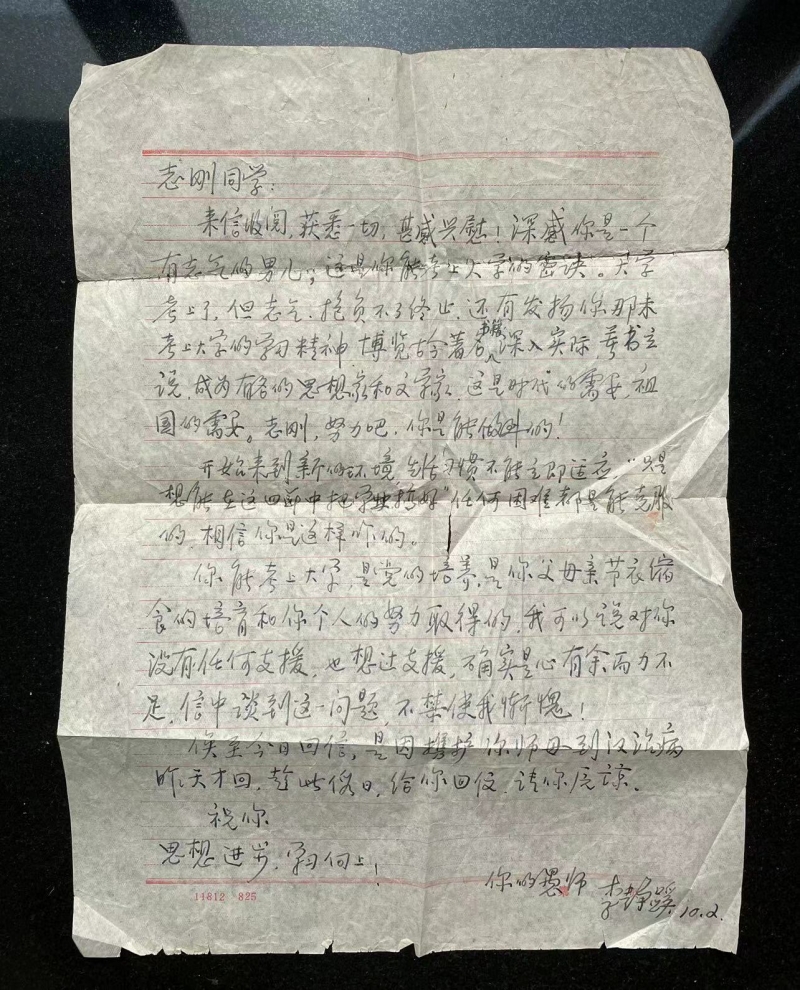 志刚同学：
来信收阅，获悉一切，甚感兴慰！深感你是一个
有志气的男儿，这是你能考上大学的密诀。大学
考上了，但志气、抱负不了终止，还有发扬你那未
考上大学的学习精神 博览古今著名书籍，深入实际，著书立
说，成为有名的思想家和文学家，这是时代的需要，祖
国的需要。志刚，努力吧，你是能做到的！
开始来到新的环境，生活习惯不能立即适应，“只是
想能在这四年中把学业搞好”任何困难都是能克服
的，相信你是这样咋的。
你能考上大学，是党的培养，是你父母亲节衣缩
食的培育和你个人的努力取得的，我可以说对你
没有任何支援，也想过支援，确实是心有余而力不
足，信中谈到这一问题，不禁使我惭愧！
俟至今日回信，是因携护你师母到汉治病
昨天才回，趁此假日，给你回信，请你原谅。
祝你
思想进步，学习向上！
你的愚师 李静 10.2.
11812 825